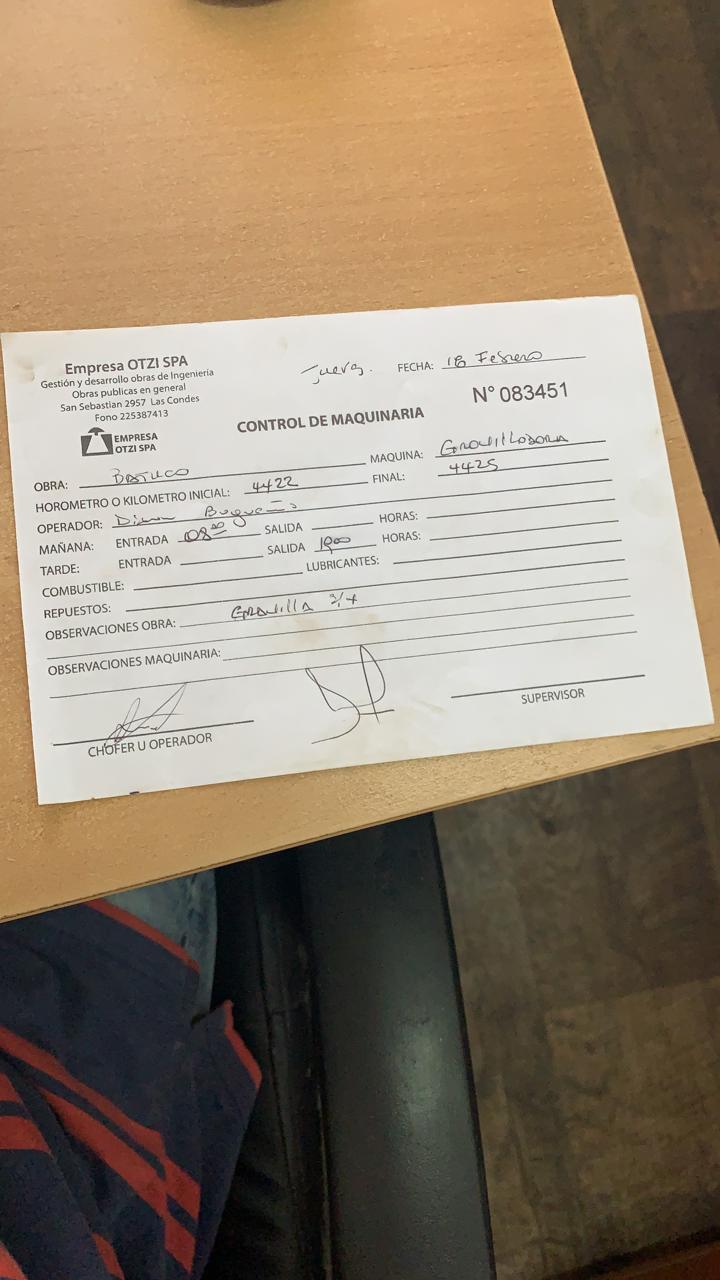 Empresa OTZI SPA
Gestión y desarrollo obras de Ingenieria
Obras publicas en general
San Sebastian 2957 Las Condes
Fono 225387413
EMPRESA
OTZI SPA
Jueves. FECHA: 18 Febrero
N° 083451
CONTROL DE MAQUINARIA
OBRA: MAQUINA: Gravilladora
HOROMETRO O KILOMETRO INICIAL: 4422 FINAL: 4425
OPERADOR:
MAÑANA: ENTRADA 08:00 SALIDA HORAS:
TARDE: ENTRADA SALIDA 1900 HORAS:
COMBUSTIBLE: LUBRICANTES:
REPUESTOS:
OBSERVACIONES OBRA: Gravilla 3/4
OBSERVACIONES MAQUINARIA:
CHOFER U OPERADOR
SUPERVISOR